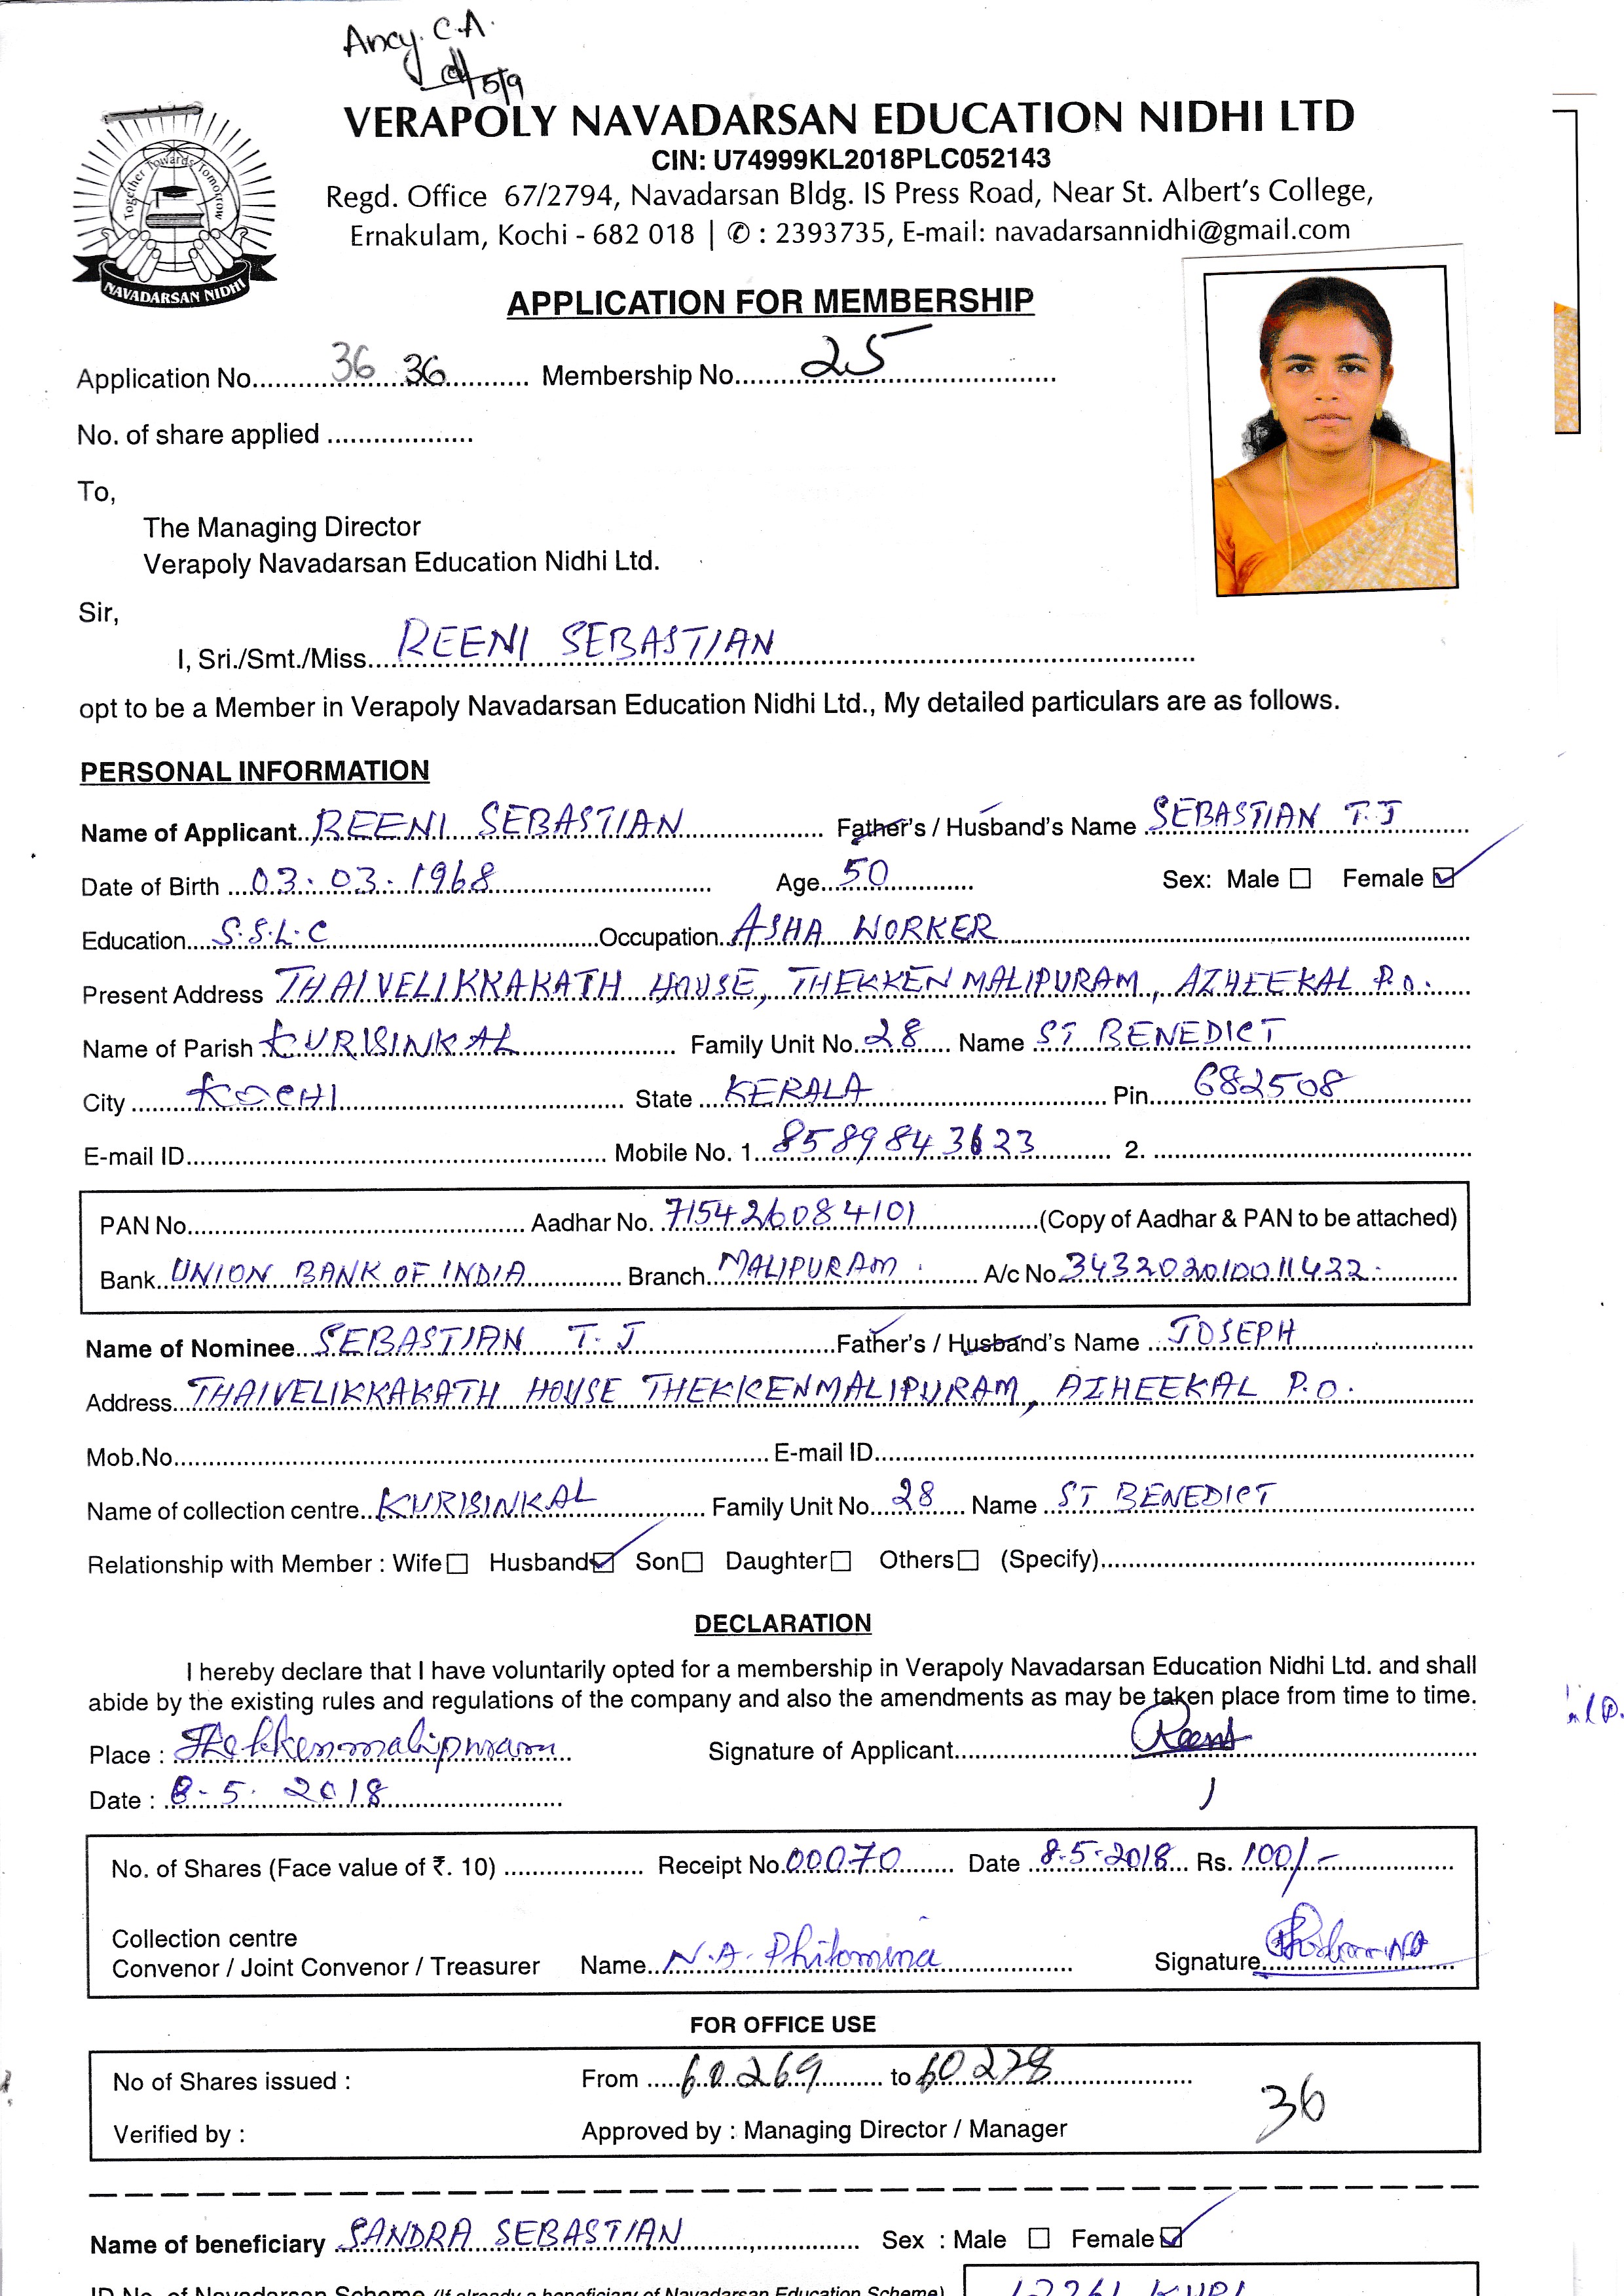 Ancy. C.A.
5/9
VERAPOLY NAVADARSAN EDUCATION NIDHI LTD
CIN: U74999KL2018PLC052143
Regd. Office 67/2794, Navadarsan Bldg. IS Press Road, Near St. Albert's College,
Ernakulam, Kochi - 682 018 | ✆ : 2393735, E-mail: navadarsannidhi@gmail.com
Together Towards Tomorrow
NAVADARSAN NIDHI
APPLICATION FOR MEMBERSHIP
Application No. 36 36 Membership No. 25
No. of share applied
To,
The Managing Director
Verapoly Navadarsan Education Nidhi Ltd.
Sir,
I, Sri./Smt./Miss. REENI SEBASTIAN
opt to be a Member in Verapoly Navadarsan Education Nidhi Ltd., My detailed particulars are as follows.
PERSONAL INFORMATION
Name of Applicant REENI SEBASTIAN Father's / Husband's Name SEBASTIAN T.J
Date of Birth 03.03.1968 Age 50 Sex: Male ☐ Female ☑
Education S.S.L.C Occupation ASHA WORKER
Present Address THAIVELIKKAKATH HOUSE, THEKKEN MALIPURAM, AZHEEKAL P.O.
Name of Parish KURISINKAL Family Unit No. 28 Name ST BENEDICT
City KOCHI State KERALA Pin 682508
E-mail ID Mobile No. 1. 8589843623 2.
PAN No. Aadhar No. 715426084101 (Copy of Aadhar & PAN to be attached)
Bank UNION BANK OF INDIA Branch MALIPURAM A/c No. 343202010011422
Name of Nominee SEBASTIAN T.J Father's / Husband's Name JOSEPH
Address THAIVELIKKAKATH HOUSE THEKKENMALIPURAM, AZHEEKAL P.O.
Mob.No. E-mail ID
Name of collection centre KURISINKAL Family Unit No. 28 Name ST BENEDICT
Relationship with Member : Wife ☐ Husband ☑ Son ☐ Daughter ☐ Others ☐ (Specify)
DECLARATION
I hereby declare that I have voluntarily opted for a membership in Verapoly Navadarsan Education Nidhi Ltd. and shall
abide by the existing rules and regulations of the company and also the amendments as may be taken place from time to time.
Place : Thekkenmalipuram Signature of Applicant Reeni
Date : 8-5-2018
No. of Shares (Face value of ₹. 10) Receipt No. 00070 Date 8-5-2018 Rs. 100/-
Collection centre
Convenor / Joint Convenor / Treasurer Name N.A. Philomina Signature Philomina
FOR OFFICE USE
No of Shares issued : From 60269 to 60278
36
Verified by : Approved by : Managing Director / Manager
Name of beneficiary SANDRA SEBASTIAN Sex : Male ☐ Female ☑
ID No. of Navadarsan Scheme (If already a beneficiary of Navadarsan Education Scheme)